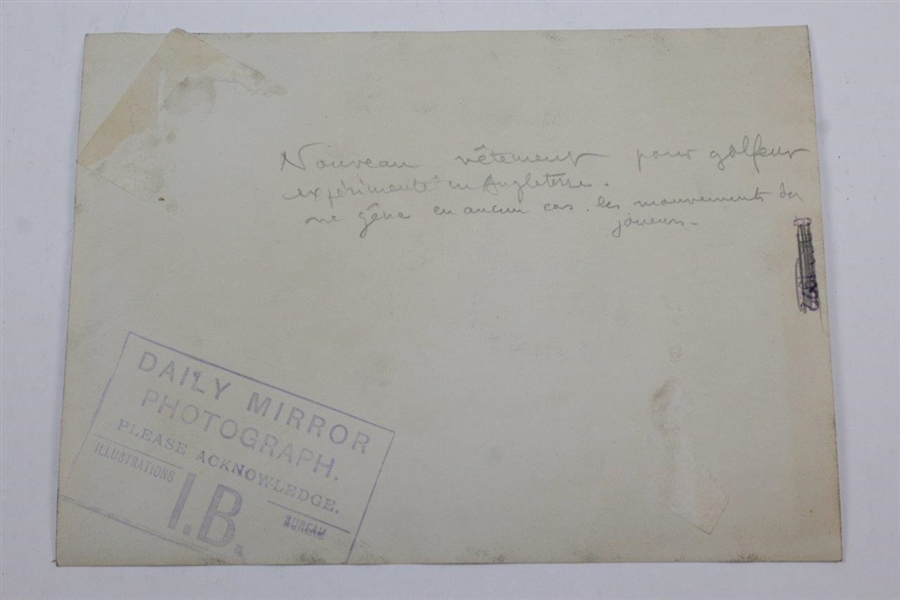 Nouveau vêtement pour golfeur
expérimenté en Angleterre.
ne gêne en aucun cas les mouvements des
joueurs.
DAILY MIRROR
PHOTOGRAPH.
PLEASE ACKNOWLEDGE.
ILLUSTRATIONS
I.B.
BUREAU